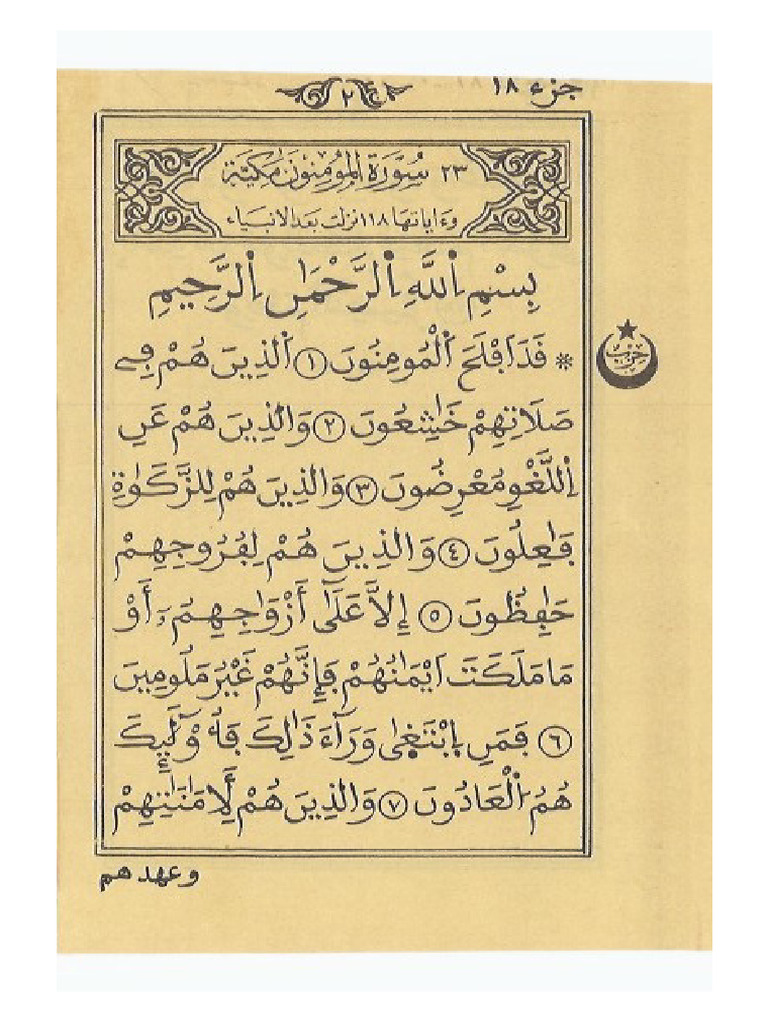 جزء ١٨
٢
٢٣ سُورَةُ الْمُومِنُونَ مَكِّيَّةٌ
وءاياتها ١١٨ نزلت بعد الانبياء
بِسْمِ اِ۬للَّهِ اِ۬لرَّحْمَٰنِ اِ۬لرَّحِيمِ
* قَدَ اَفْلَحَ اَ۬لْمُومِنُونَ ١ اَ۬لذِينَ هُمْ فِے
حزب
صَلَاتِهِمْ خَٰشِعُونَ ٢ وَالذِينَ هُمْ عَنِ
اِ۬للَّغْوِ مُعْرِضُونَ ٣ وَالذِينَ هُمْ لِلزَّكَوٰةِ
فَٰعِلُونَ ٤ وَالذِينَ هُمْ لِفُرُوجِهِمْ
حَٰفِظُونَ ٥ إِلَّا عَلَىٰٓ أَزْوَٰجِهِمُۥٓ أَوْ
مَا مَلَكَتَ اَيْمَٰنُهُمْ فَإِنَّهُمْ غَيْرُ مَلُومِينَ
٦ فَمَنِ اِ۪بْتَغ۪ىٰ وَرَآءَ ذَٰلِكَ فَأُوْلَٰٓئِكَ
هُمُ اُ۬لْعَادُونَ ٧ وَالذِينَ هُمْ لِأَمَٰنَٰتِهِمْ
وعهدهم